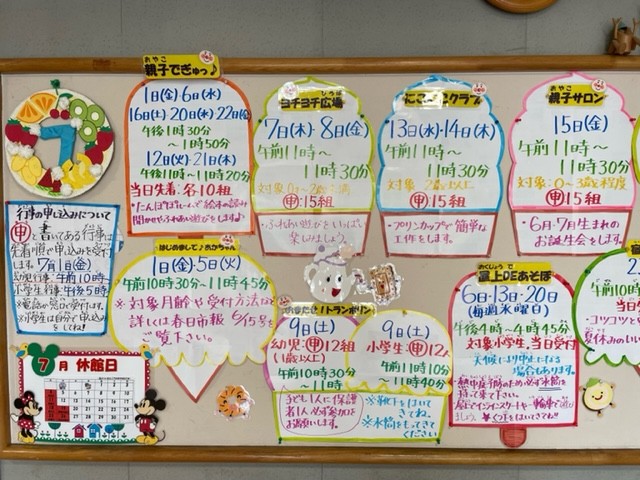 7
行事の申し込みについて
申と書いてある行事は
先着順で申込みを受付
します。7月1日(金)
幼児行事:午前10時
小学生行事:午後5時
※電話や窓口で受付ます。
※小学生は自分で申込み
をしてね!
7月 休館日
おやこ
親子でぎゅっ♪
1日(金)・6日(水)
16日(土)・20日(水)・22日(金)
午後1時30分
～1時50分
12日(火)・21日(木)
午後1時～1時20分
当日先着:各10組
はじめまして♪あかちゃん
1日(金)・5日(火)
午前10時30分～11時45分
※対象月齢や受付方法など
詳しくは春日市報 6/15号を
ご覧下さい。
ひろば
ヨチヨチ広場
7日(木)・8日(金)
午前11時～
11時30分
申:15組
・ふれあい遊びをいっぱい
楽しみましょう。
クラブ
13日(水)・14日(木)
午前11時～
11時30分
対象 2歳以上
申:15組
・プリンカップで簡単な
工作をします。
おやこ
親子サロン
15日(金)
午前11時～
11時30分
対象:0～3歳程度
申:15組
・6月・7月生まれの
お誕生会をします。
トランポリン
9日(土)
幼児:申12組
(1歳以上)
午前10時30分
～11時
子ども1人に保護
者1人必ず参加を
お願いします。
9日(土)
小学生:申12人
午前11時10分
～11時40分
※靴下をはいて
きてね。
※水筒をもってきて
ください
おくじょう で
屋上DEあそぼ
6日・13日・20日
(毎週水曜日)
午後4時～4時45分
対象:小学生、当日受付
天候により中止になる
場合もあります。